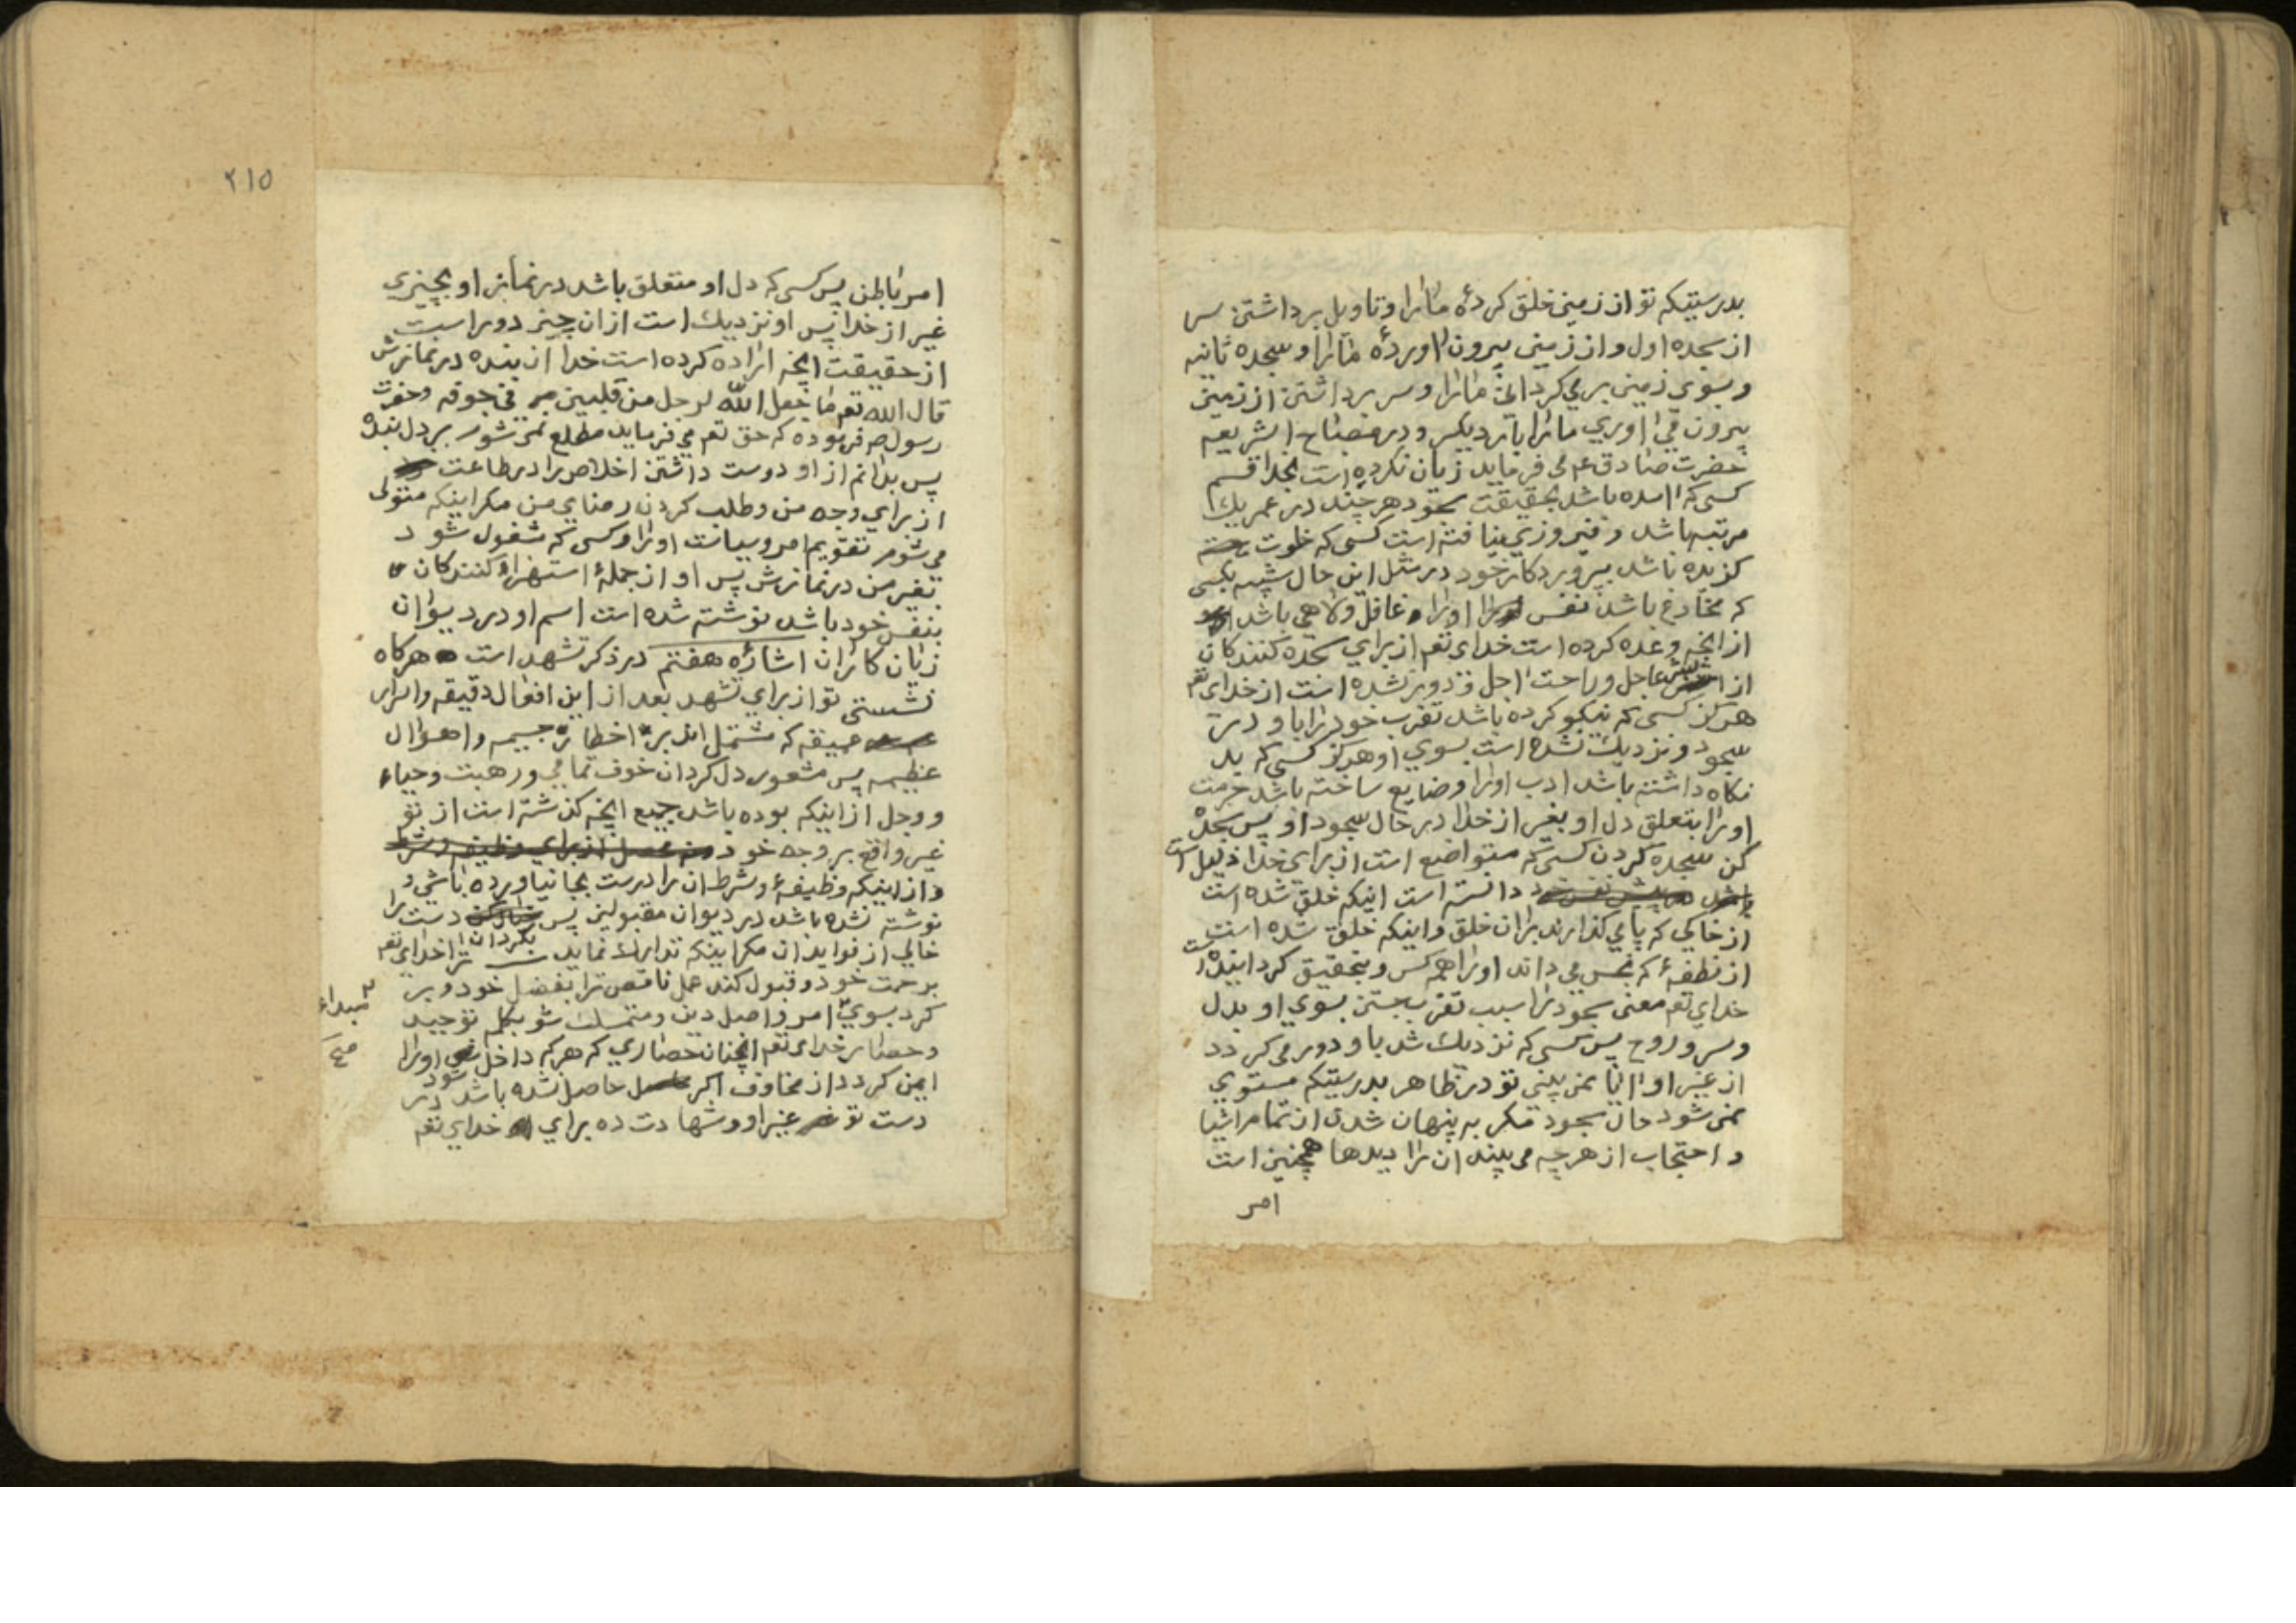 بدرستیکه تو از زمین خلق کردهٔ مارا و تاویل برداشتن سر
از سجده اول و از زمین بیرون اوردهٔ مارا و سجده ثانیه
و بسوی زمین بر می کردانی مارا و سر برداشتن از زمین
بیرون می اوری مارا بار دیکر و در مصباح الشریعه
حضرت صادق عم می فرماید زیان نکرده است بخدا قسم
کسی که امده باشد بحقیقت سجود هر چند در عمر یک
مرتبه باشد و فیروزی نیافته است کسی که خلوت
کزیده باشد بپروردکار خود در مثل این حال شبیه بکسی
که مخادع باشد نفس اورا و غافل و لاهی باشد
از انچه وعده کرده است خدای تعم از برای سجده کنندکان
از انس عاجل و راحت اجل و دور نشده است از خدای تعم
هرکز کسی که نیکو کرده باشد تقرب خود را باو در
سجود و نزدیک نشده است بسوی او هرکز کسی که بد
نکاه داشته باشد ادب اورا و ضایع ساخته باشد حرمت
اورا بتعلق دل او بغیر از خدا در حال سجود او پس سجده
کن سجده کردن کسی که متواضع است از برای خدا ذلیل است
دانسته است اینکه خلق شده است
از خاکی که پا می کذارند بران خلق و اینکه خلق شده است
از نطفهٔ که نجس می داند اورا همه کس و بتحقیق کردانیده است
خدای تعم معنی سجود را سبب تقرب جستن بسوی او بدل
و سر و روح پس کسی که نزدیک شد باو دور می کردد
از غیر او ایا نمی بینی تو در ظاهر بدرستیکه مستوی
نمی شود حال سجود مکر به پنهان شدن از تمام اشیا
و احتجاب از هر چه می بیند ان را دیدها همچنین است
امر
۲۱۵
امر باطن پس کسی که دل او متعلق باشد در نماز او بچیزی
غیر از خدا پس او نزدیک است ازان چیز دور است
از حقیقت انچه اراده کرده است خدا ان بنده در نمازش
قال الله تعم ما جعل الله لرجل من قلبین فی جوفه و حضرت
رسول صم فرموده که حق تعم می فرماید مطلع نمی شوم بر دل بنده
پس بدانم از او دوست داشتن اخلاص را در طاعت
از برای وجه من و طلب کردن رضای من مکر اینکه متولی
می شوم تقویم امر و سیاست اورا و کسی که مشغول شود
بغیر من در نمازش پس او از جملهٔ استهزاء کنندکان
بنفس خود باشد نوشته شده است اسم او در دیوان
زیان کاران اشارهٔ هفتم در ذکر تشهد است هرکاه
نشستی تو از برای تشهد بعد از این افعال دقیقه و اسرار
عمیقه که مشتمل اند بر اخطار جسیمه و اهوال
عظیمه پس مشعور دل کردان خوف تمامی و رهبت و حیاء
و وجل از اینکه بوده باشد جمیع انچه کذشته است از تو
غیر واقع بر وجه خود
و از اینکه وظیفهٔ و شرط ان را درست بجا نیاورده باشی و
نوشته نشده باشد در دیوان مقبولین پس بکردان دست را
خالی از فواید ان مکر اینکه تدارک نماید ترا خدای تعم
برحمت خود و قبول کند عمل ناقص ترا بفضل خود و بر
کرد بسوی امر و اصل دین و متمسک شو بکلمه توحید
مبداء
صح
و حصار خدای تعم انچنان حصاری که هر که داخل شود اورا
ایمن کردد از مخاوف اکر حاصل نشده باشد در
دست تو غیر او و شهادت ده برای خدای تعم